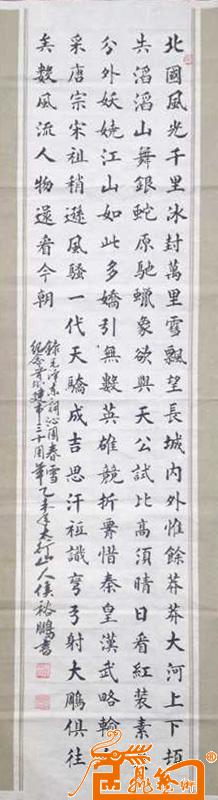 北國風光千里冰封萬里雪飄望長城內外惟餘莽莽大河上下頓
失滔滔山舞銀蛇原馳蠟象欲與天公試比高須晴日看紅裝素
分外妖嬈江山如此多嬌引無數英雄競折腰惜秦皇漢武略輸
采唐宗宋祖稍遜風騷一代天驕成吉思汗祗識彎弓射大鵰俱往
矣數風流人物還看今朝
錄毛澤東詞沁園春雪
紀念三十周年乙未年太行山人侯裕鵬書